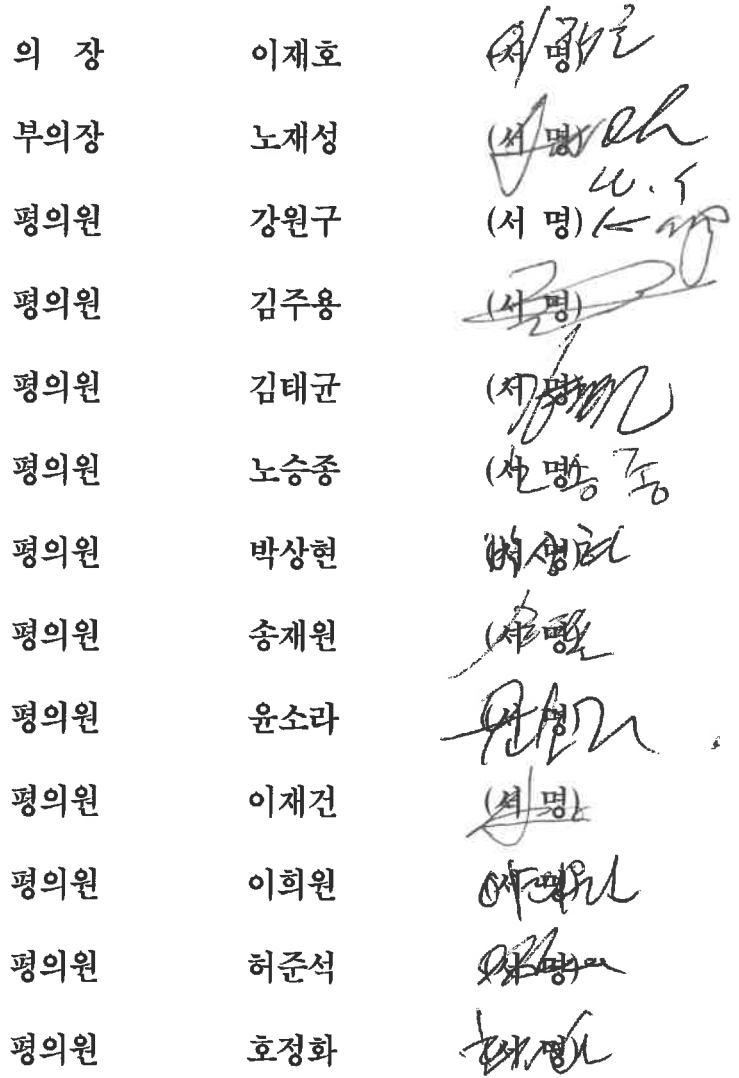 의 장 이재호 (서 명)
부의장 노재성 (서 명)
평의원 강원구 (서 명)
평의원 김주용 (서 명)
평의원 김태균 (서 명)
평의원 노승종 (서 명)
평의원 박상현 (서 명)
평의원 송재원 (서 명)
평의원 윤소라 (서 명)
평의원 이재건 (서 명)
평의원 이희원 (서 명)
평의원 허준석 (서 명)
평의원 호정화 (서 명)